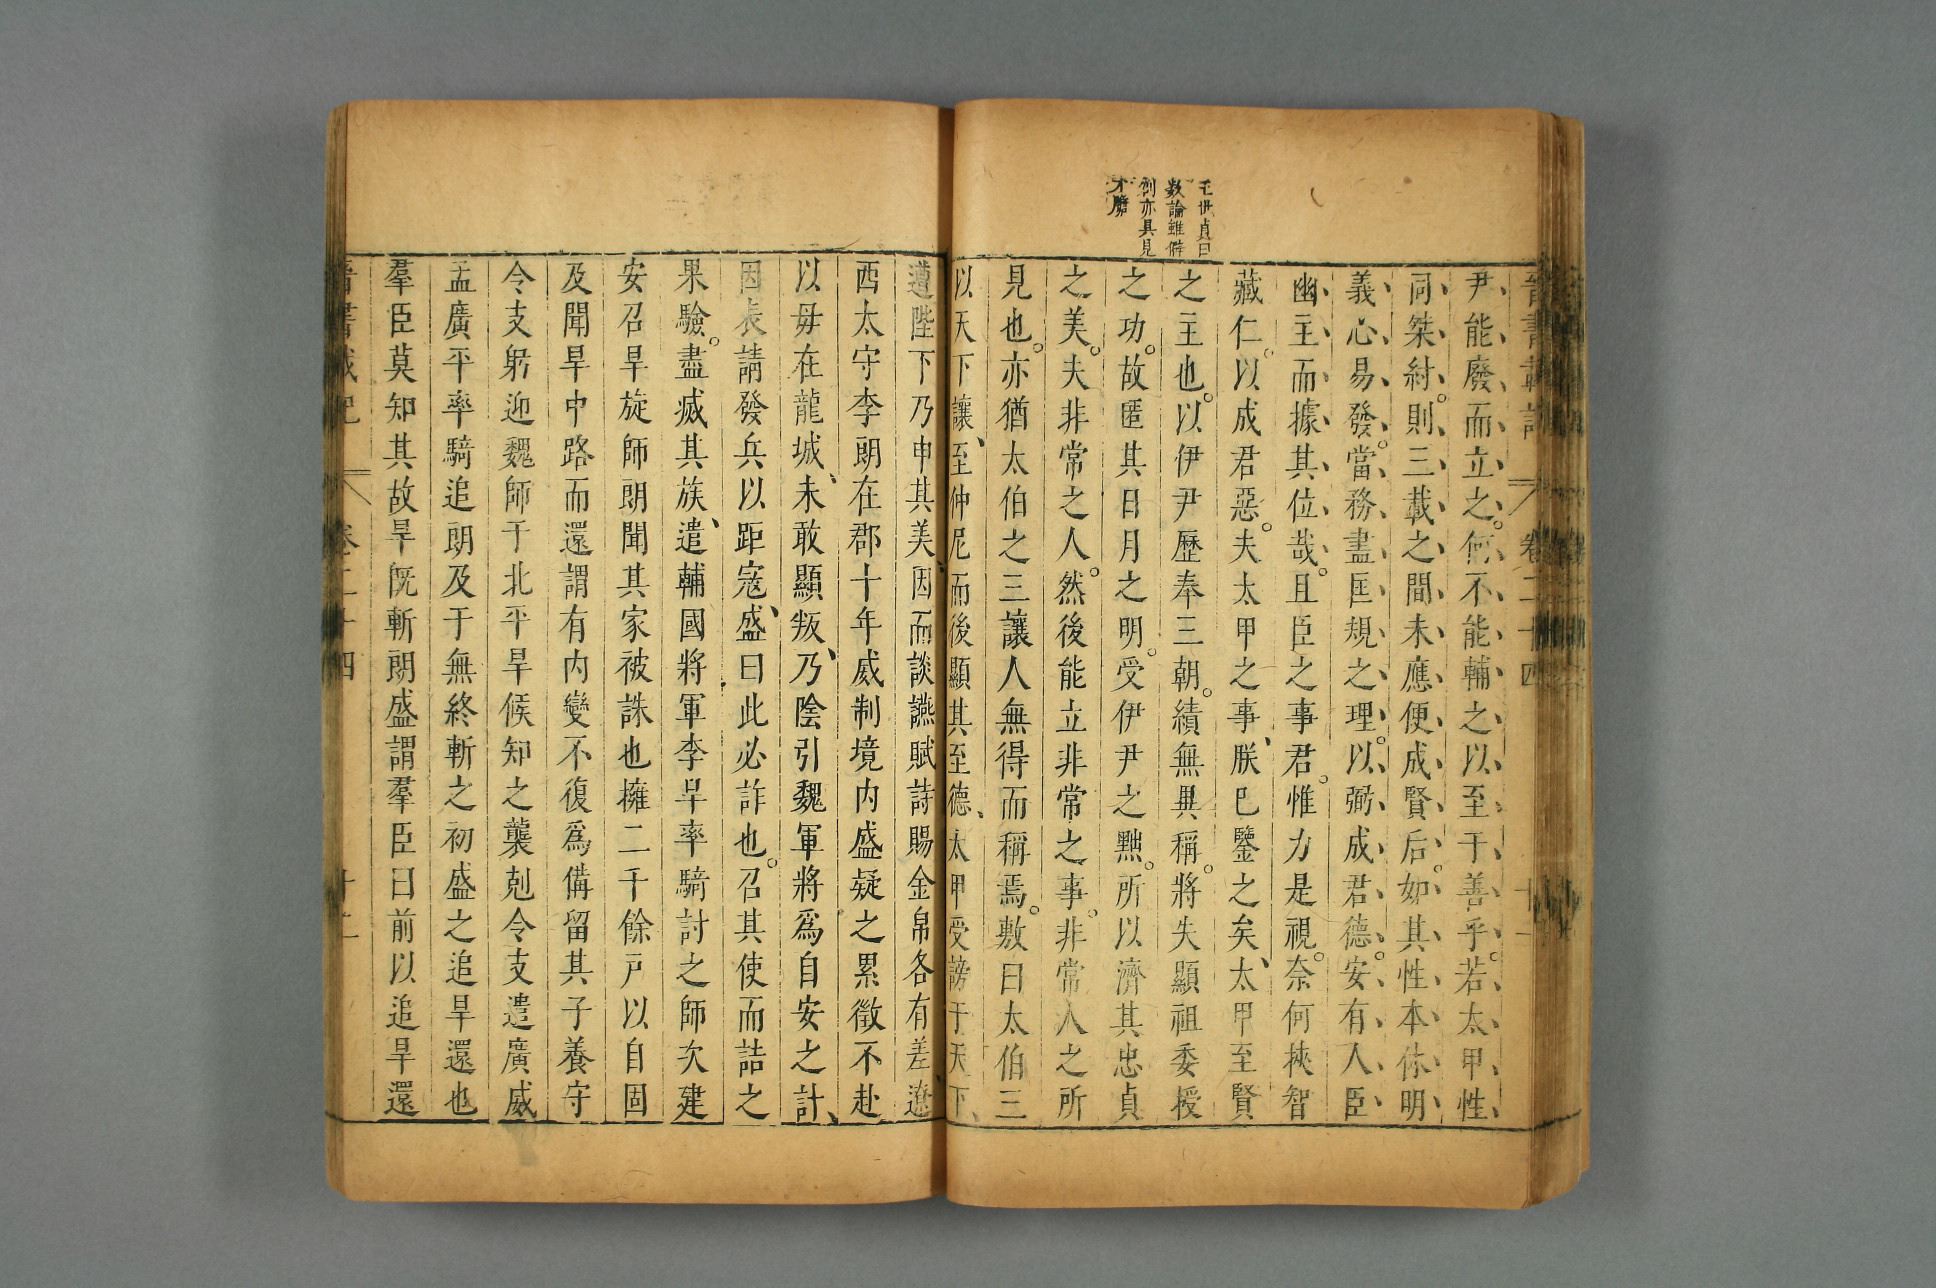 晉書載記 卷二十四 十一
尹能廢而立之何不能輔之以至于善乎若太甲性
同桀紂則三載之間未應便成賢后如其性本休明
義心易發當務盡匡規之理以弼成君德安有人臣
幽主而據其位哉且臣之事君惟力是視奈何挾智
藏仁以成君惡夫太甲之事朕已鑒之矣太甲至賢
之主也以伊尹歷奉三朝績無異稱將失顯祖委授
之功故匿其日月之明受伊尹之黜所以濟其忠貞
之美夫非常之人然後能立非常之事非常人之所
見也亦猶太伯之三讓人無得而稱焉敷曰太伯三
以天下讓至仲尼而後顯其至德太甲受謗于天下
王世貞曰
數論雖僻
剏亦具見
才膽
遭陛下乃申其美因而談讌賦詩賜金帛各有差遼
西太守李朗在郡十年威制境内盛疑之累徵不赴
以母在龍城未敢顯叛乃陰引魏軍將爲自安之計
因表請發兵以距寇盛曰此必詐也召其使而詰之
果驗盡滅其族遣輔國將軍李旱率騎討之師次建
安召旱旋師朗聞其家被誅也擁二千餘戸以自固
及聞旱中路而還謂有内變不復爲備留其子養守
令支躬迎魏師于北平旱候知之襲剋令支遣廣威
孟廣平率騎追朗及于無終斬之初盛之追旱還也
羣臣莫知其故旱既斬朗盛謂羣臣曰前以追旱還
晉書載記 卷二十四 十二